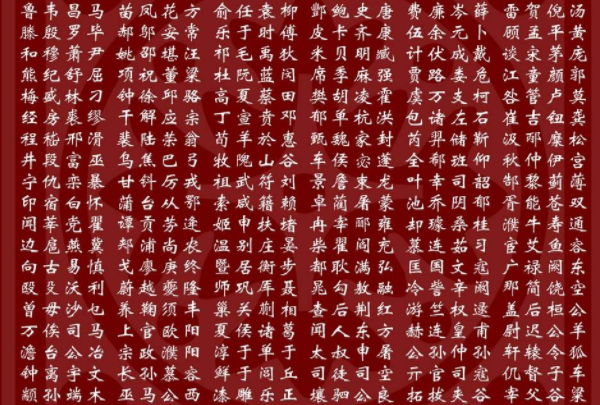 鲁韦昌马 苗凤花方 俞任袁柳 酆鲍史唐 费廉岑薛 雷贺倪汤
滕殷罗毕 郝邬安常 乐于时傅 皮卞齐康 伍余元卜 顾孟平黄
和穆萧尹 姚邵湛汪 祁毛禹狄 米贝明臧 计伏成戴 谈宋茅庞
熊纪舒屈 项祝董梁 杜阮蓝闵 席季麻强 贾路娄危 江童颜郭
梅盛林刁 钟徐邱骆 高夏蔡田 樊胡凌霍 虞万支柯 昝管卢莫
经房裘缪 干解应宗 丁宣贲邓 郁单杭洪 包诸左石 崔吉钮龚
程嵇邢滑 裴陆荣翁 荀羊於惠 甄曲家封 芮羿储靳 汲邴糜松
井段富巫 乌焦巴弓 牧隗山谷 车侯宓蓬 全郗班仰 秋仲伊宫
宁仇栾暴 甘钭厉戎 祖武符刘 景詹束龙 叶幸司韶 郜黎蓟薄
印宿白怀 蒲台从鄂 索咸籍赖 卓蔺屠蒙 池乔阴郁 胥能苍双
闻莘党翟 谭贡劳逄 姬申扶堵 冉宰郦雍 郤璩桑桂 濮牛寿通
边扈燕冀 郏浦尚农 温别庄晏 柴瞿阎充 慕连茹习 宦艾鱼容
向古易慎 戈廖庾终 暨居衡步 都耿满弘 匡国文寇 广禄阙东
欧殳沃利 蔚越夔隆 师巩厍聂 晁勾敖融 冷訾辛阚 那简饶空
曾毋沙乜 养鞠须丰 巢关蒯相 查后荆红 游竺权逯 盖益桓公
万俟司马 上官欧阳 夏侯诸葛 闻人东方 赫连皇甫 尉迟公羊
澹台公冶 宗政濮阳 淳于单于 太叔申屠 公孙仲孙 轩辕令狐
钟离宇文 长孙慕容 鲜于闾丘 司徒司空 亓官司寇 仉督子车
颛孙端木 巫马公西 漆雕乐正 壤驷公良 拓跋夹谷 宰父谷梁